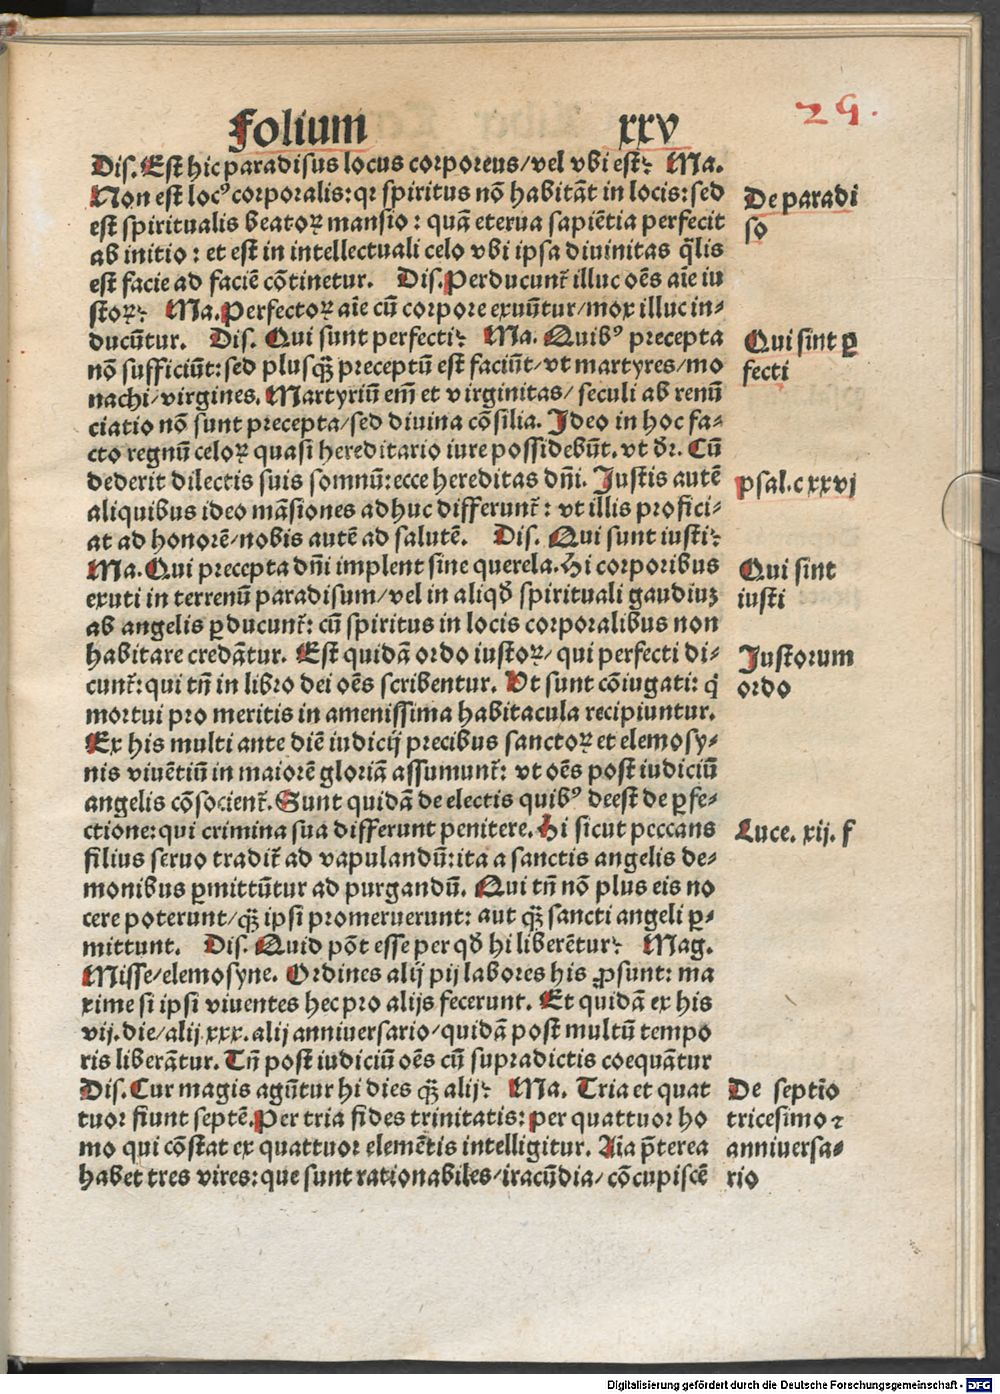 Folium xxv
29.
Dis. Est hic paradisus locus corporeus/vel vbi est: Ma.
Non est locꝰ corporalis: qꝛ spiritus nō habitāt in locis: sed
est spiritualis beatoꝝ mansio: quā eterna sapiētia perfecit
ab initio: et est in intellectuali celo vbi ipsa diuinitas q̄lis
est facie ad faciē cōtinetur. Dis. Perducunt̄ illuc oēs aīe iu
stoꝝ: Ma. Perfectoꝝ aīe cū corpore exuūtur/mox illuc in-
ducūtur. Dis. Qui sunt perfecti: Ma. Quibꝰ precepta
nō sufficiūt: sed plusqꝫ preceptū est faciūt/vt martyres/mo
nachi/virgines. Martyriū em̄ et virginitas/seculi ab renū
ciatio nō sunt precepta/sed diuina cōsilia. Ideo in hoc fa-
cto regnū celoꝝ quasi hereditario iure possidebūt. vt dr̄. Cū
dederit dilectis suis somnū: ecce hereditas dn̄i. Iustis autē
aliquibus ideo māsiones adhuc differunt̄: vt illis profici-
at ad honorē/nobis autē ad salutē. Dis. Qui sunt iusti:
Ma. Qui precepta dn̄i implent sine querela. Hi corporibus
exuti in terrenū paradisum/vel in aliqd̄ spirituali gaudiuꝫ
ab angelis ꝑducunt̄: cū spiritus in locis corporalibus non
habitare credātur. Est quidā ordo iustoꝝ/qui perfecti di-
cunt̄: qui tn̄ in libro dei oēs scribentur. Vt sunt cōiugati: q̇
mortui pro meritis in amenissima habitacula recipiuntur.
Ex his multi ante diē iudicij precibus sanctoꝝ et elemosy-
nis viuētiū in maiorē gloriā assumunt̄: vt oēs post iudiciū
angelis cōsocient̄. Sunt quidā de electis quibꝰ deest de ꝑfe-
ctione: qui crimina sua differunt penitere. Hi sicut peccans
filius seruo tradit̄ ad vapulandū: ita a sanctis angelis de-
monibus ꝑmittūtur ad purgandū. Qui tn̄ nō plus eis no
cere poterunt/qꝫ ipsi promeruerunt: aut qꝫ sancti angeli ꝑ-
mittunt. Dis. Quid pōt esse per qd̄ hi liberētur: Mag.
Misse/elemosyne. Ordines alij pij labores his ꝓsunt: ma
xime si ipsi viuentes hec pro alijs fecerunt. Et quidā ex his
vij. die/alij xxx. alij anniuersario/quidā post multū tempo
ris liberātur. Tn̄ post iudiciū oēs cū supradictis coequātur
Dis. Cur magis agūtur hi dies qꝫ alij: Ma. Tria et quat
tuor fiunt septē. Per tria fides trinitatis: per quattuor ho
mo qui cōstat ex quattuor elemētis intelligitur. Aīa p̄terea
habet tres vires: que sunt rationabiles/iracūdia/cōcupiscē
De paradi
so
Qui sint ꝑ
fecti
psal. cxxvj
Qui sint
iusti
Iustorum
ordo
Luce. xij. f
De septīo
tricesimo ⁊
anniuersa-
rio
Digitalisierung gefördert durch die Deutsche Forschungsgemeinschaft - DFG